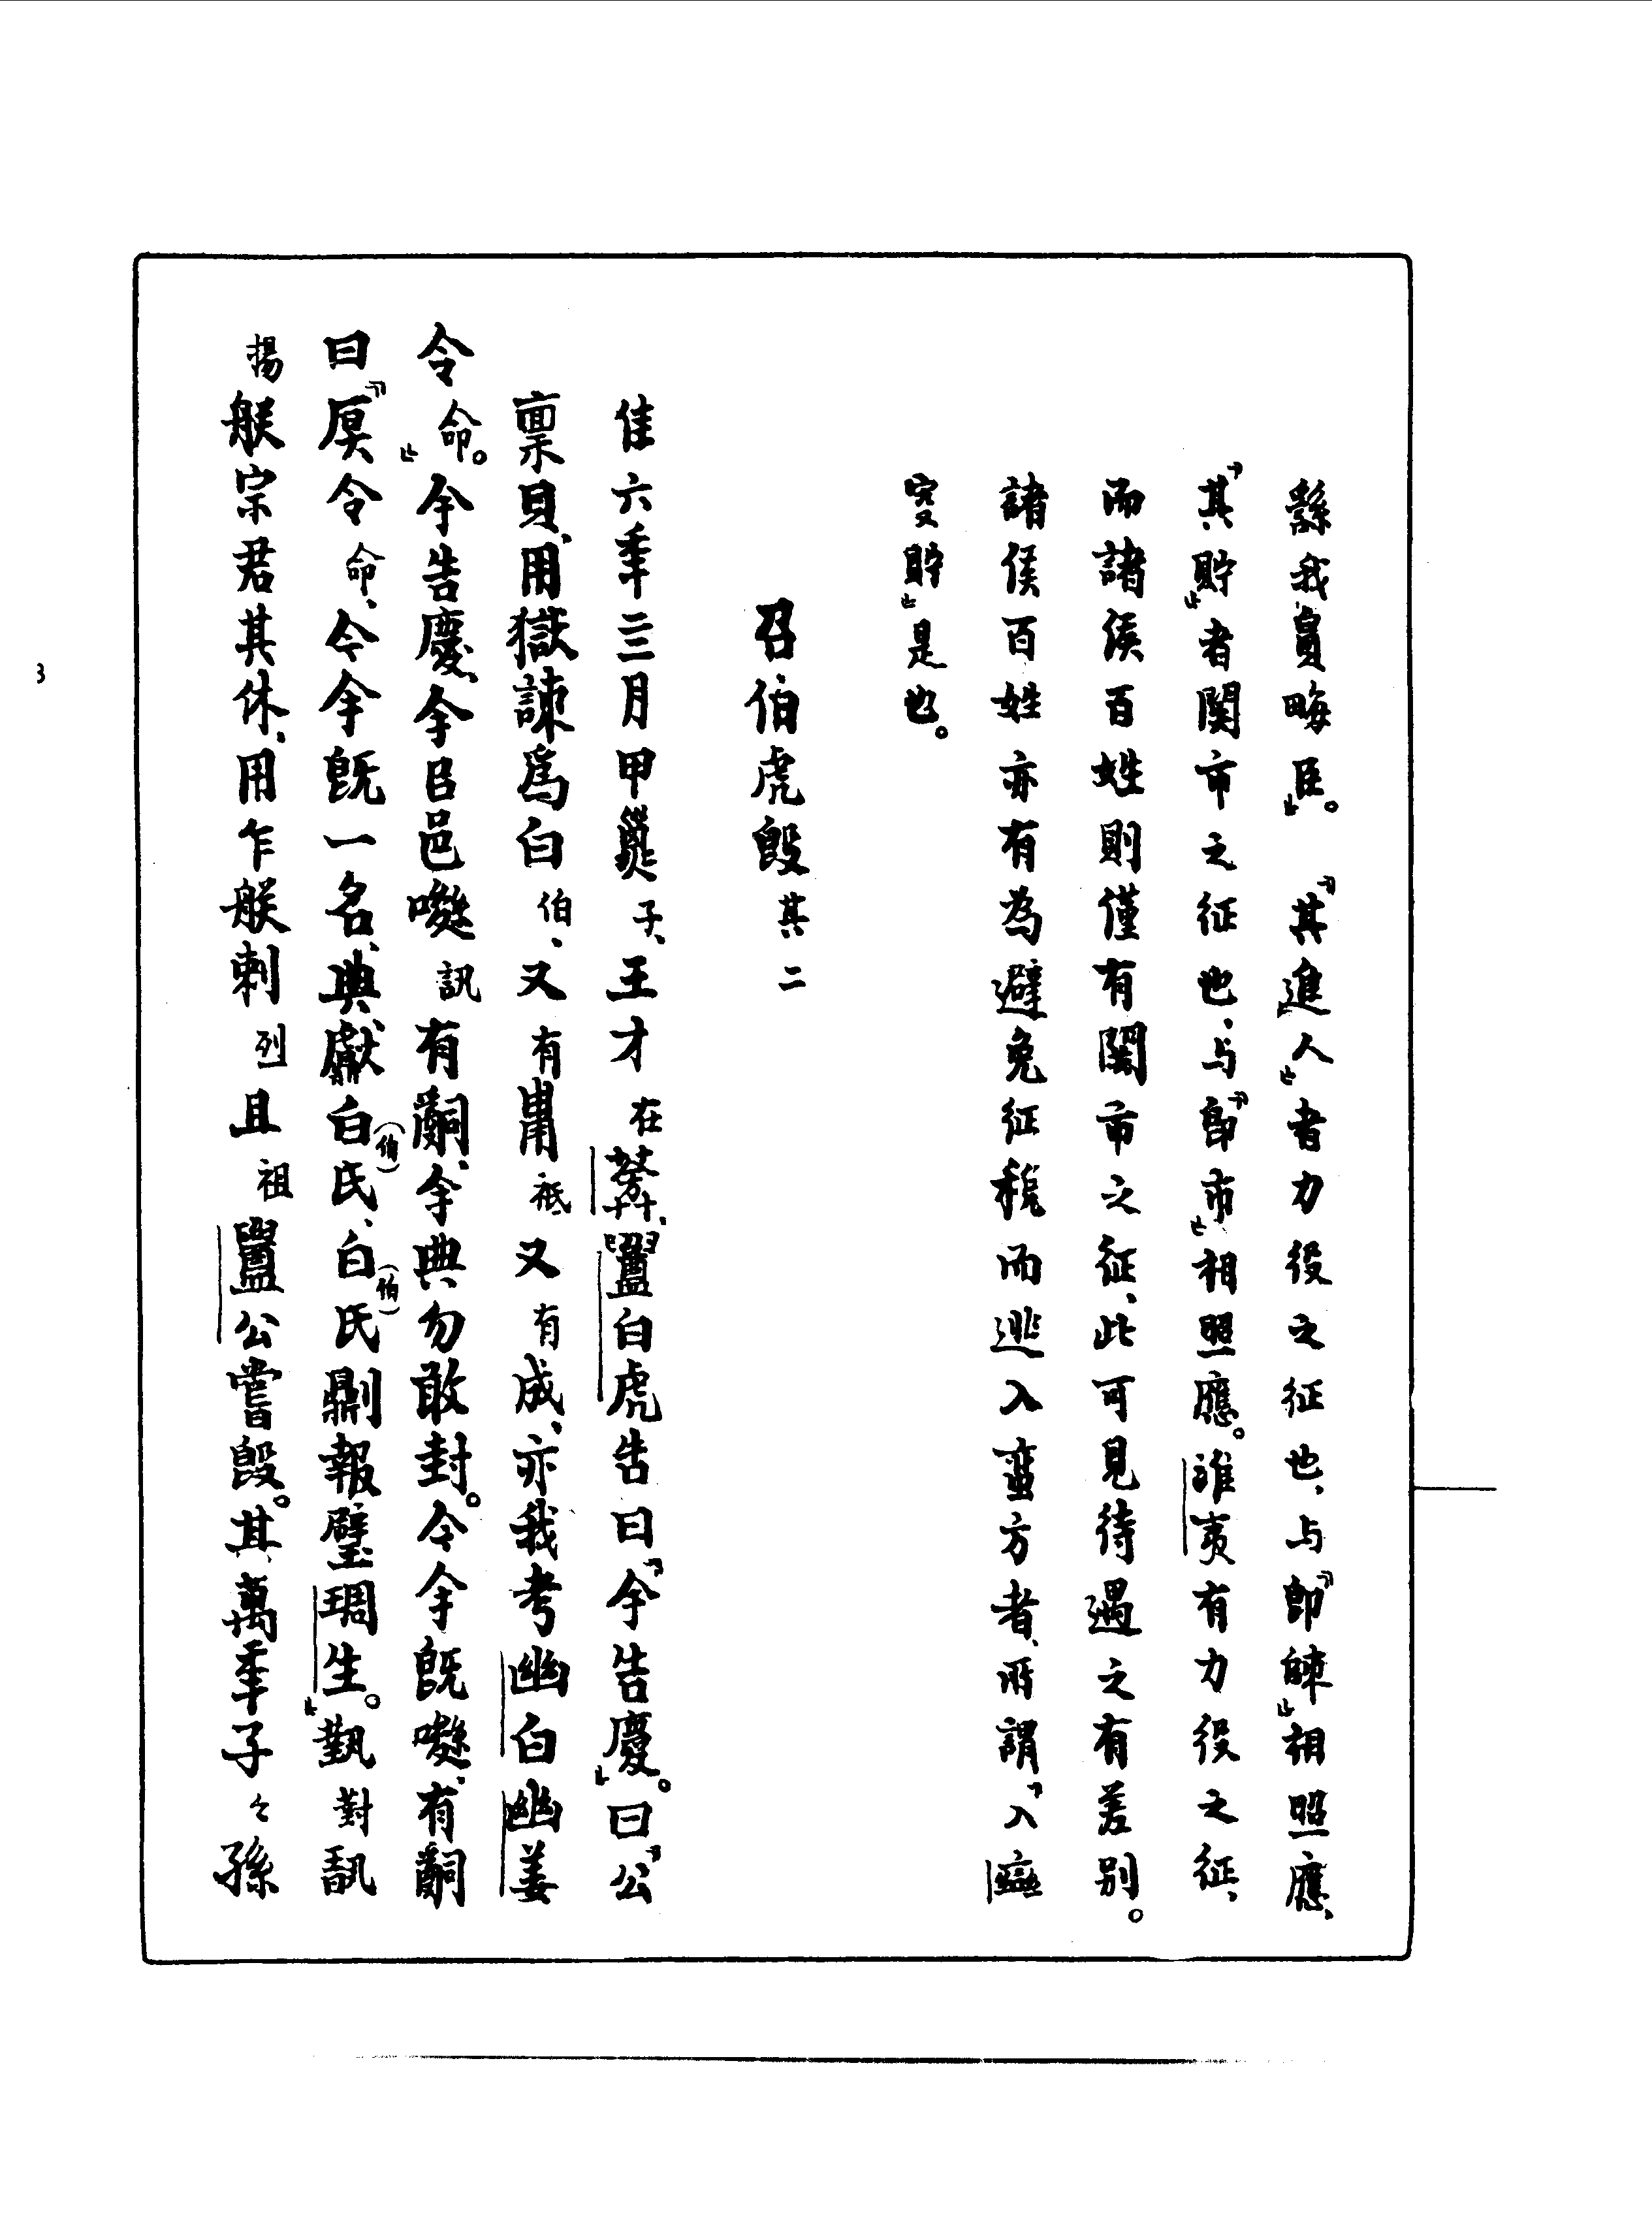 繇我員畮臣。」『其進人』者力役之征也、与『即𧻚』相照應、
『其貯』者関市之征也、与『即市』相照應。淮夷有力役之征、
而諸侯百姓則僅有関市之征、此可見待遇之有差别。
諸侯百姓亦有為避免征税而逃入蛮方者、所謂『入䜌
穾貯』是也。
召伯虎𣪘其二
隹六年三月甲子、王才在𦭵、召白虎告曰『余告慶。』曰『公
稟貝、用獄諫爲白伯、又有祗又有成、亦我考幽白幽姜
令命。』余告慶、余㠯邑訊有嗣、余典勿敢封。今余既訊、有嗣
曰『㑷令命、今余既一名、典獻白(伯)氏、白(伯)氏𠟭報璧琱生。』對訊
揚朕宗君其休、用乍朕剌列且祖召公嘗𣪘。其萬年子々孫